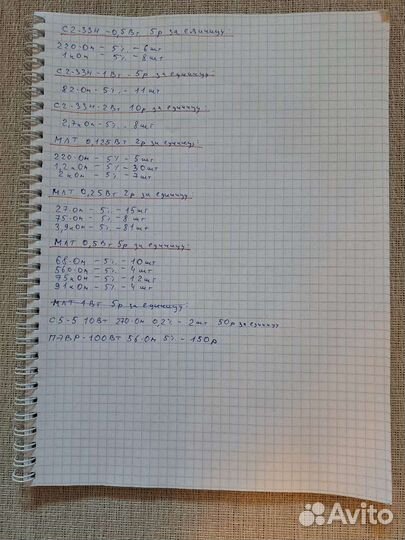 С2-33Н -0,5Вт 5р за единицу:
220·Ом - 5% - 6шт
1кОм - 5% - 8шт
С2-33Н-1Вт - 5р за единицу:
82·Ом - 5% - 11шт
С2-33Н-2Вт 10р за единицу:
2,7кОм - 5% - 8шт
МЛТ 0,125Вт 2р за единицу:
220·Ом - 5% - 5шт
1,2кОм - 5% - 30шт
2кОм - 5% - 7шт
МЛТ 0,25Вт 2р за единицу
27·Ом - 5% - 15шт
75·Ом - 5% - 8шт
3,9кОм - 5% - 81шт
МЛТ 0,5Вт 5р за единицу:
68·Ом - 5% - 10шт
560·Ом - 5% - 4шт
75кОм - 5% - 12шт
91кОм - 5% - 4шт
МЛТ-1Вт 5р за единицу:
С5-5 10Вт 270·Ом 0,2% - 2шт 50р за единицу
ПЭВР-100Вт 56·Ом 5% - 150р
Avito